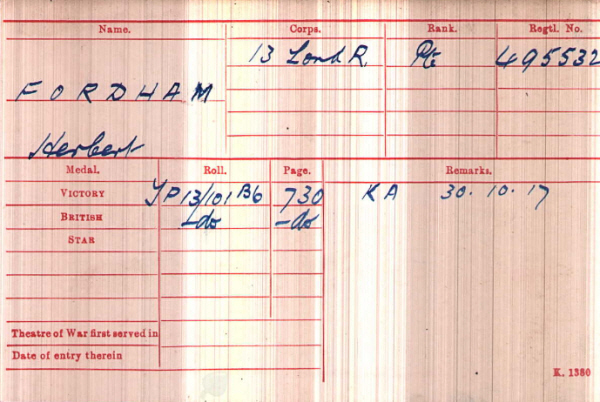 Name. Corps. Rank. Regtl. No.
13 Lond R. Pte 495532
FORDHAM
Herbert
Medal. Roll. Page. Remarks.
VICTORY TP 13/101 B6 730 K A 30.10.17
BRITISH -do -do
STAR
Theatre of War first served in
Date of entry therein
K. 1380